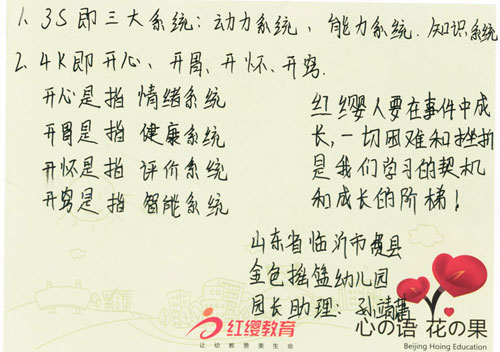 1. 3S即三大系统：动力系统，能力系统. 知识系统
2. 4K即开心、开胃、开怀、开窍.
开心是指 情绪系统
开胃是指 健康系统
开怀是指 评价系统
开窍是指 智能系统
红缨人要在事件中成
长，一切困难和挫折
是我们学习的契机
和成长的阶梯！
山东省临沂市费县
金色摇篮幼儿园
园长助理：孙靖
红缨教育
让幼教赞美生命
心の语 花の果
Beijing Hoing Education